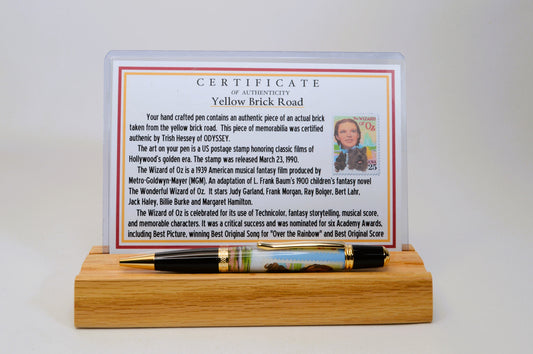 CERTIFICATE
OF AUTHENTICITY
Yellow Brick Road
Your hand crafted pen contains an authentic piece of an actual brick
taken from the yellow brick road. This piece of memorabilia was certified
authentic by Trish Hessey of ODYSSEY.
The art on your pen is a US postage stamp honoring classic films of
Hollywood's golden era. The stamp was released March 23, 1990.
The Wizard of Oz is a 1939 American musical fantasy film produced by
Metro-Goldwyn-Mayer (MGM). An adaptation of L. Frank Baum's 1900 children's fantasy novel
The Wonderful Wizard of Oz. It stars Judy Garland, Frank Morgan, Ray Bolger, Bert Lahr,
Jack Haley, Billie Burke and Margaret Hamilton.
The Wizard of Oz is celebrated for its use of Technicolor, fantasy storytelling, musical score,
and memorable characters. It was a critical success and was nominated for six Academy Awards,
including Best Picture, winning Best Original Song for "Over the Rainbow" and Best Original Score
The WIZARD
OF OZ
USA
25